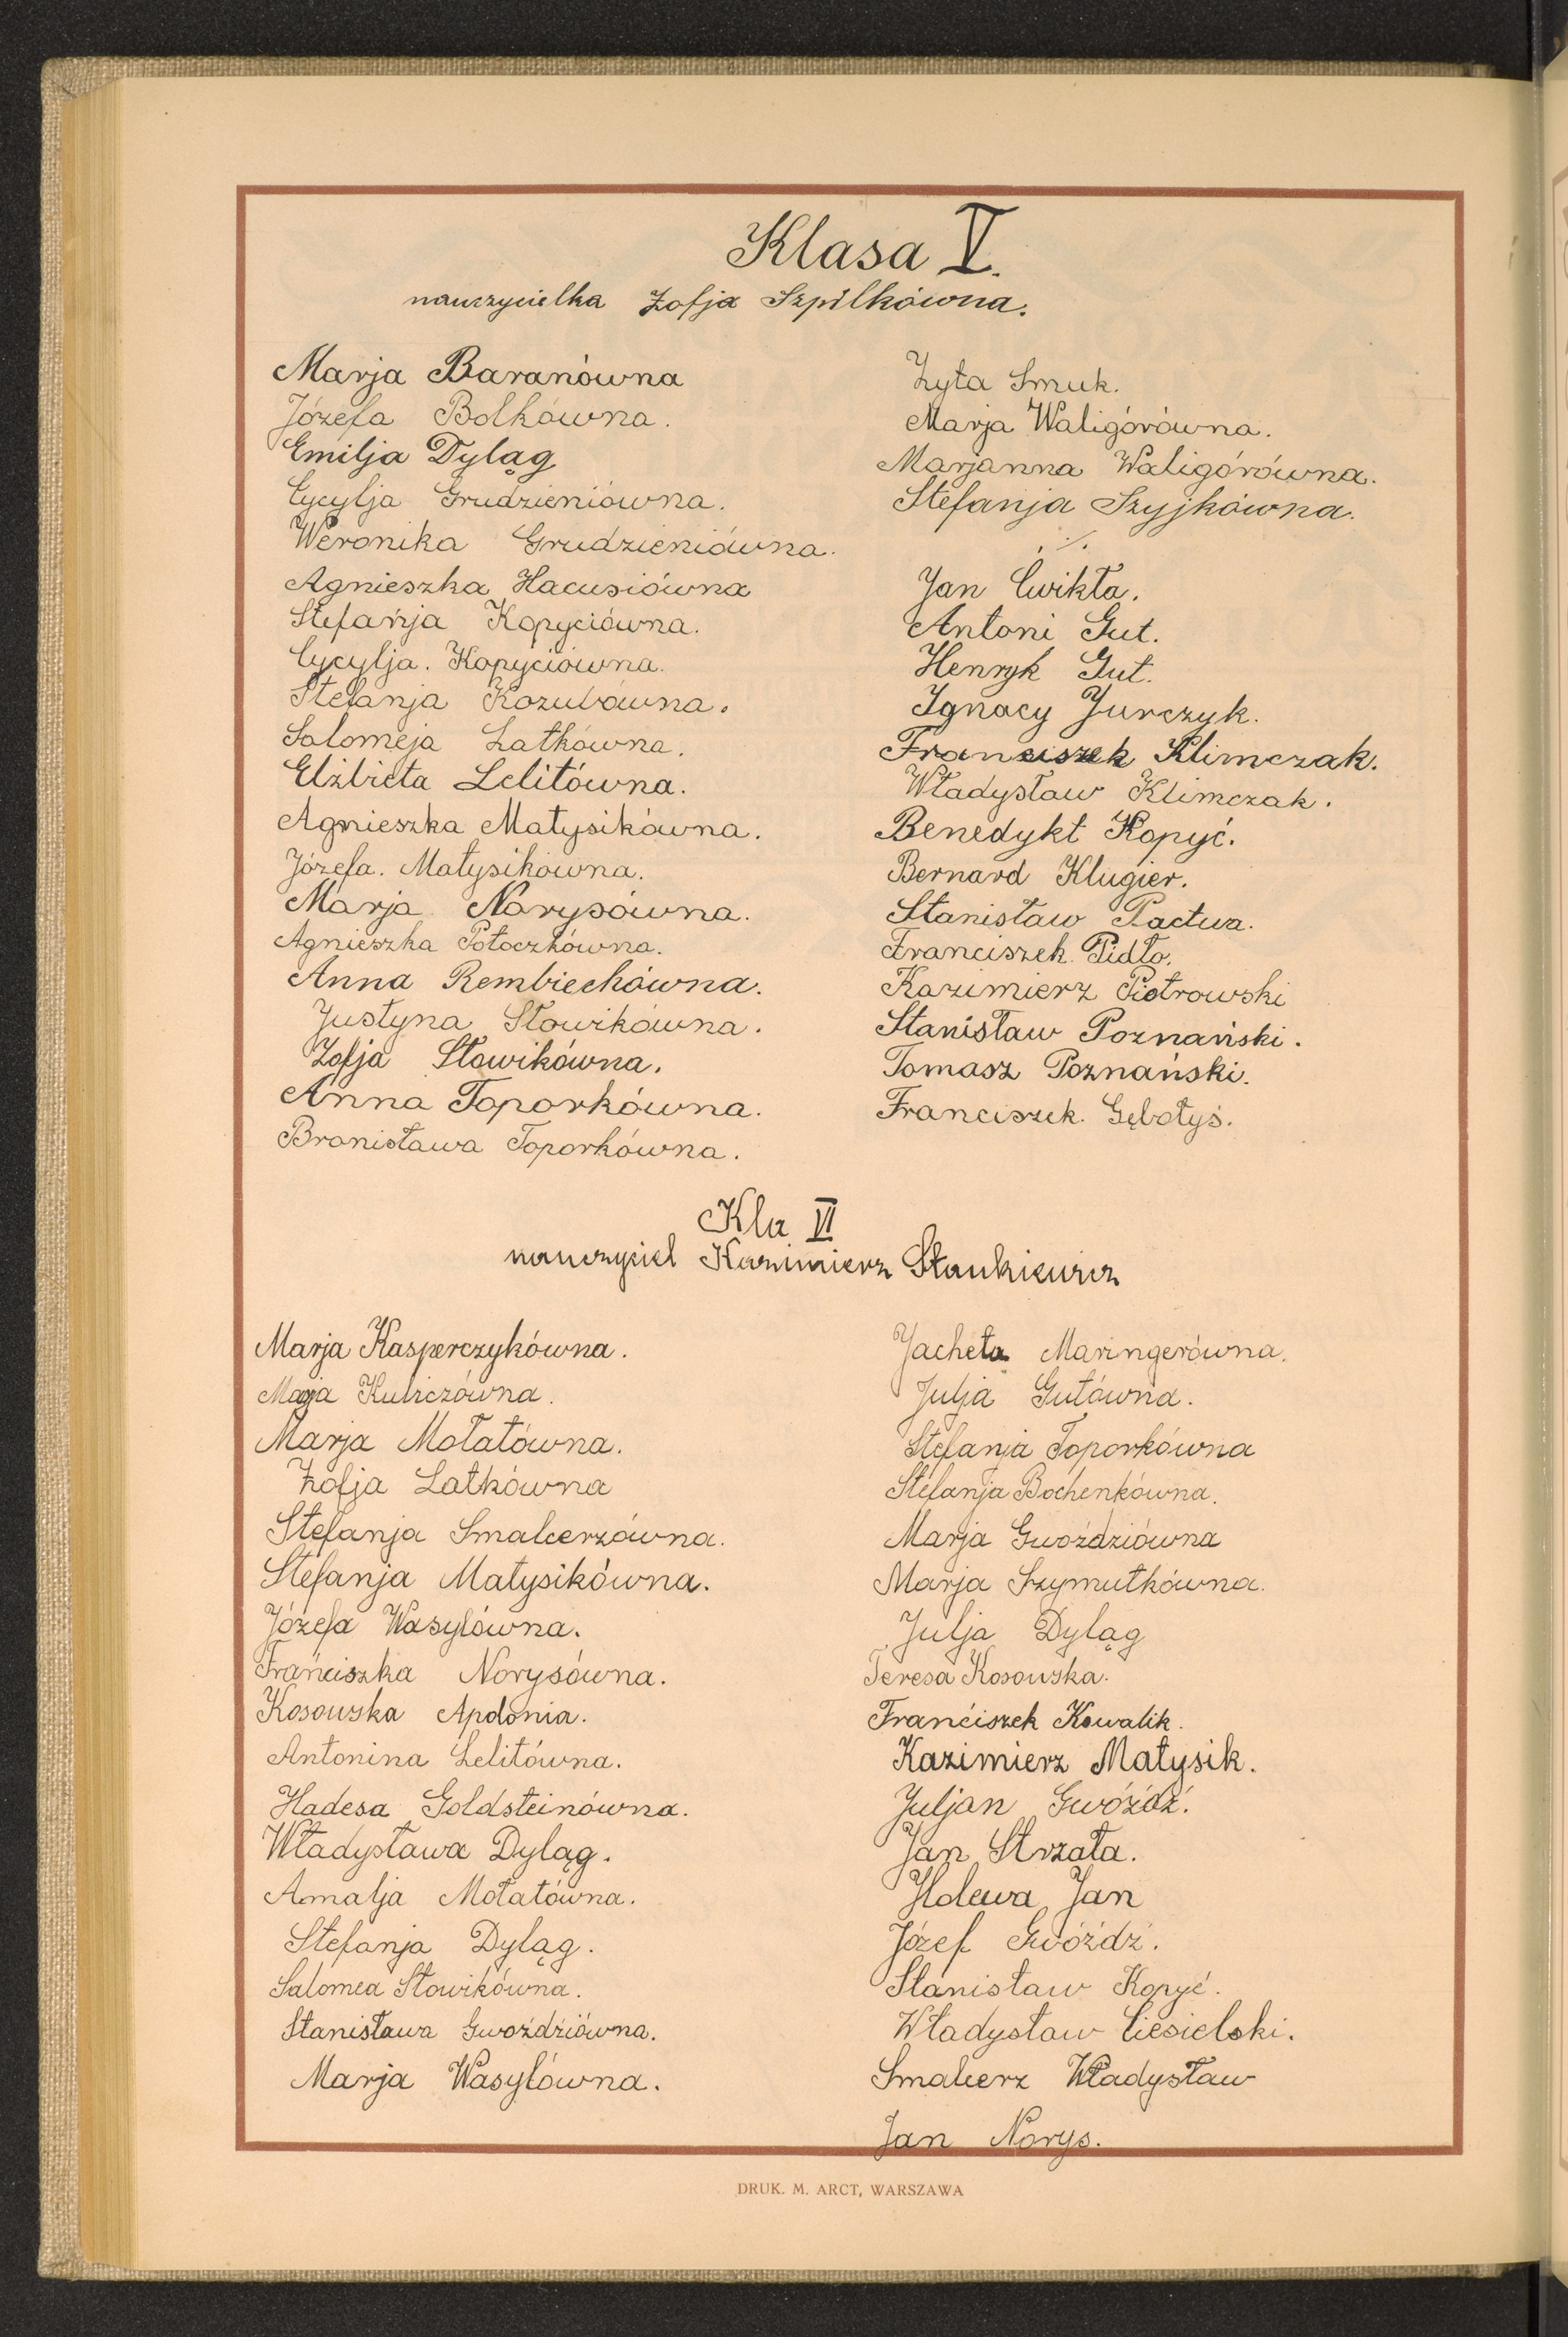 Klasa V.
nauczycielka Zofja Szpilkówna.
Marja Baranówna
Józefa Bolkówna.
Emilja Dyląg
Cycylja Grudzieniówna.
Weronika Grudzieniówna.
Agnieszka Hacusiówna
Stefanja Kopyciówna.
Cycylja. Kopyciówna.
Stefanja Kozubówna.
Salomeja Łatkówna.
Elżbieta Lelitówna.
Agnieszka Matysikówna.
Józefa. Matysikówna.
Marja Norysówna.
Agnieszka Potoczkówna.
Anna Rembiechówna.
Justyna Słowikówna.
Zofja Słowikówna.
Anna Toporkówna.
Bronisława Toporkówna.
Zyta Smuk.
Marja Waligórówna.
Marjanna Waligórówna.
Stefanja Szyjkówna.
Jan Ćwikła.
Antoni Gut.
Henryk Gut.
Ignacy Jurczyk.
Franciszek Klimczak.
Władysław Klimczak.
Benedykt Kopyć.
Bernard Klugier.
Stanisław Pactwa.
Franciszek. Pidło.
Kazimierz Piotrowski
Stanisław Poznański.
Tomasz Poznański.
Franciszek. Gębołyś.
Kla VI
nauczyciel Kazimierz Stankiewicz
Marja Kasperczykówna.
Marja Kuliczówna.
Marja Mołatówna.
Zofja Łatkówna
Stefanja Smalcerzówna.
Stefanja Matysikówna.
Józefa Wasylówna.
Franciszka Norysówna.
Kosowska Apolonia.
Antonina Lelitówna.
Hadesa Goldsteinówna.
Władysława Dyląg.
Amalja Mołatówna.
Stefanja Dyląg.
Salomea Słowikówna.
Stanisława Gwoździówna.
Marja Wasylówna.
Jacheta Maringerówna.
Julja Gutówna.
Stefanja Toporkówna
Stefanja Bochenkówna.
Marja Gwoździówna
Marja Szymutkówna.
Julja Dyląg
Teresa Kosowska.
Franciszek Kowalik.
Kazimierz Matysik.
Juljan Gwóźdź.
Jan Strzała.
Holewa Jan
Józef Gwóźdź.
Stanisław Kopyć.
Władysław Ciesielski.
Smalcerz Władysław
Jan Norys.
DRUK. M. ARCT, WARSZAWA